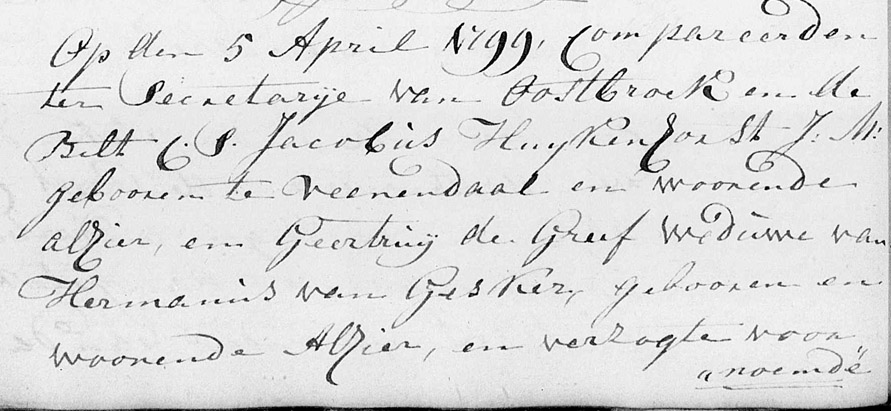 Op den 5 April 1799, Compareerden
ter Secretarije van Oostbroek en de
Bilt C: S. Jacobus Huijkenhorst J: M:
gebooren te Veenendaal en woonende
alhier, en Geertruij de Greef Wéduwe van
Hermanus van Gesker, gebooren en
woonende Alhier, en verzogte voor
„noemde"